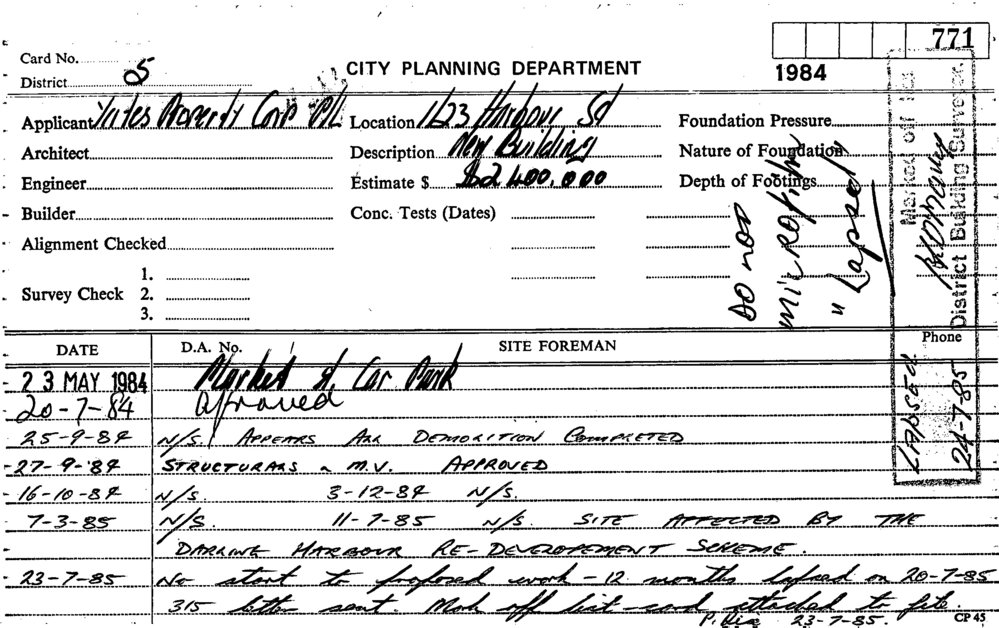 771
Card No.
1984
District 05
CITY PLANNING DEPARTMENT
Applicant Yates Property Corp P/L Location 1/23 Harbour St Foundation Pressure
Architect Description New Building Nature of Foundation
Engineer Estimate $ $2 400.000 Depth of Footings
Builder Conc. Tests (Dates)
Alignment Checked
1.
Survey Check 2.
3.
DO NOT
MICROFILM
"Lapsed"
Marked off list
District Building Surveyor.
LAPSED
24-7-85
DATE D.A. No. SITE FOREMAN Phone
23 MAY 1984 Market St. Car Park
20-7-84 approved
25-9-84 N/S. APPEARS ALL DEMOLITION COMPLETED
27-9-84 STRUCTURALS ~ M.V. APPROVED
16-10-84 N/S. 3-12-84 N/S.
7-3-85 N/S. 11-7-85 N/S. SITE AFFECTED BY THE
DARLING HARBOUR RE-DEVELOPEMENT SCHEME.
23-7-85 No start to proposed work - 12 months lapsed on 20-7-85
315 letter sent. Mark off list - card attached to file.
23-7-85.
CP 45